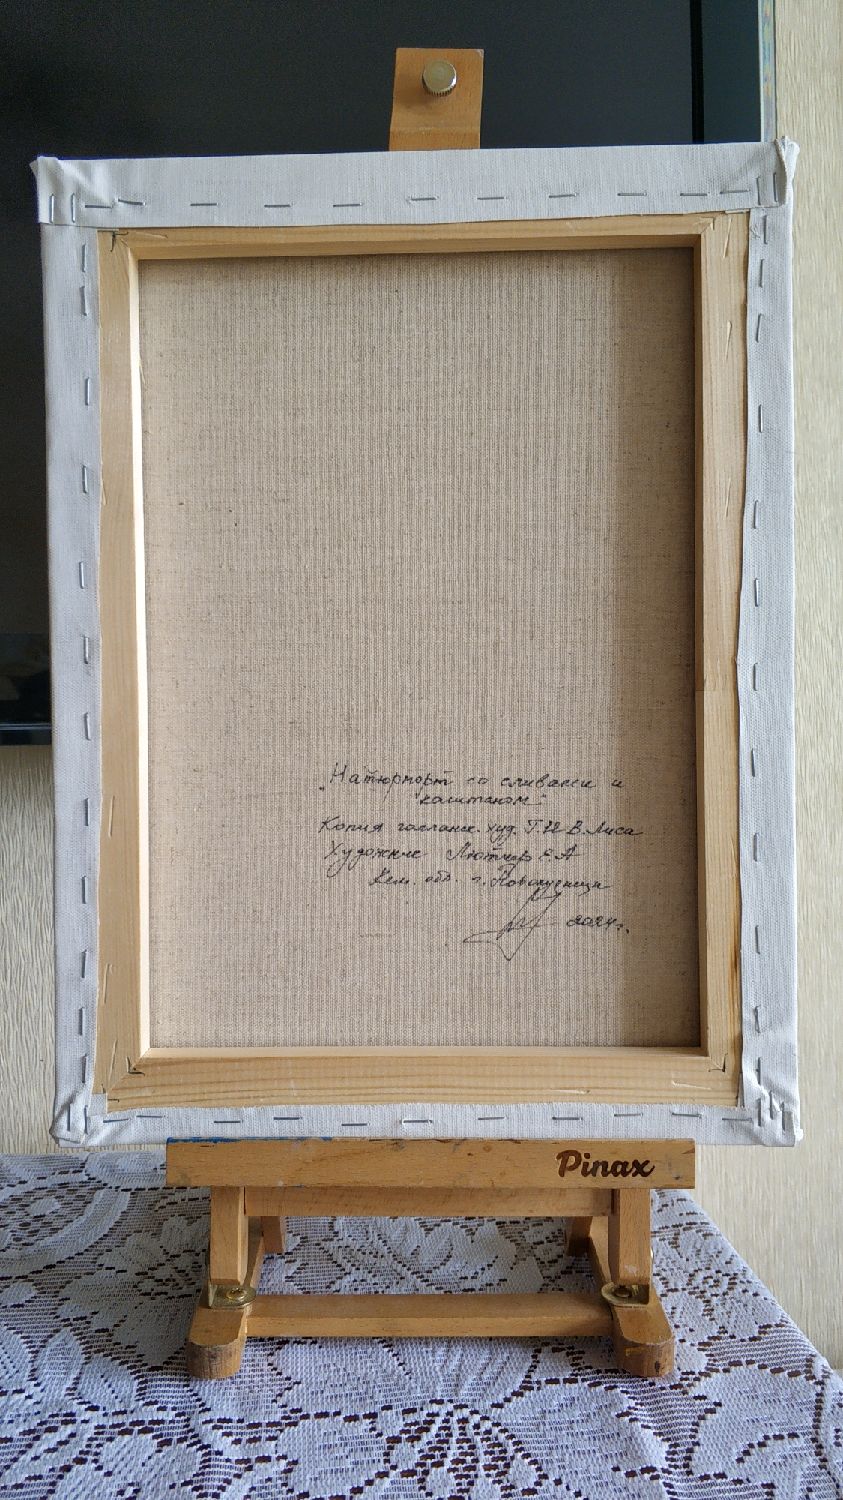 „Натюрморт со сливами и
каштаном“
Копия голланд. худ. Г. В. Лиса
Художник Лютнер Е А
Кем. обл. г. Новокузнецк
2024г.
Pinax